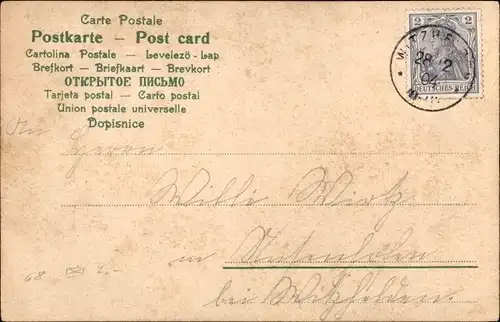 Carte Postale
Postkarte – Post card
Cartolina Postale – Levelező-Lap
Brefkort – Briefkaart – Brevkort
ОТКРЫТОЕ ПИСЬМО
Tarjeta postal – Carto postal
Union postale universelle
Dopisnice
2 2
DEUTSCHES REICH
28 2
An Herrn
Willi Wirtz
in
bei Witzhelden.
68 2.-